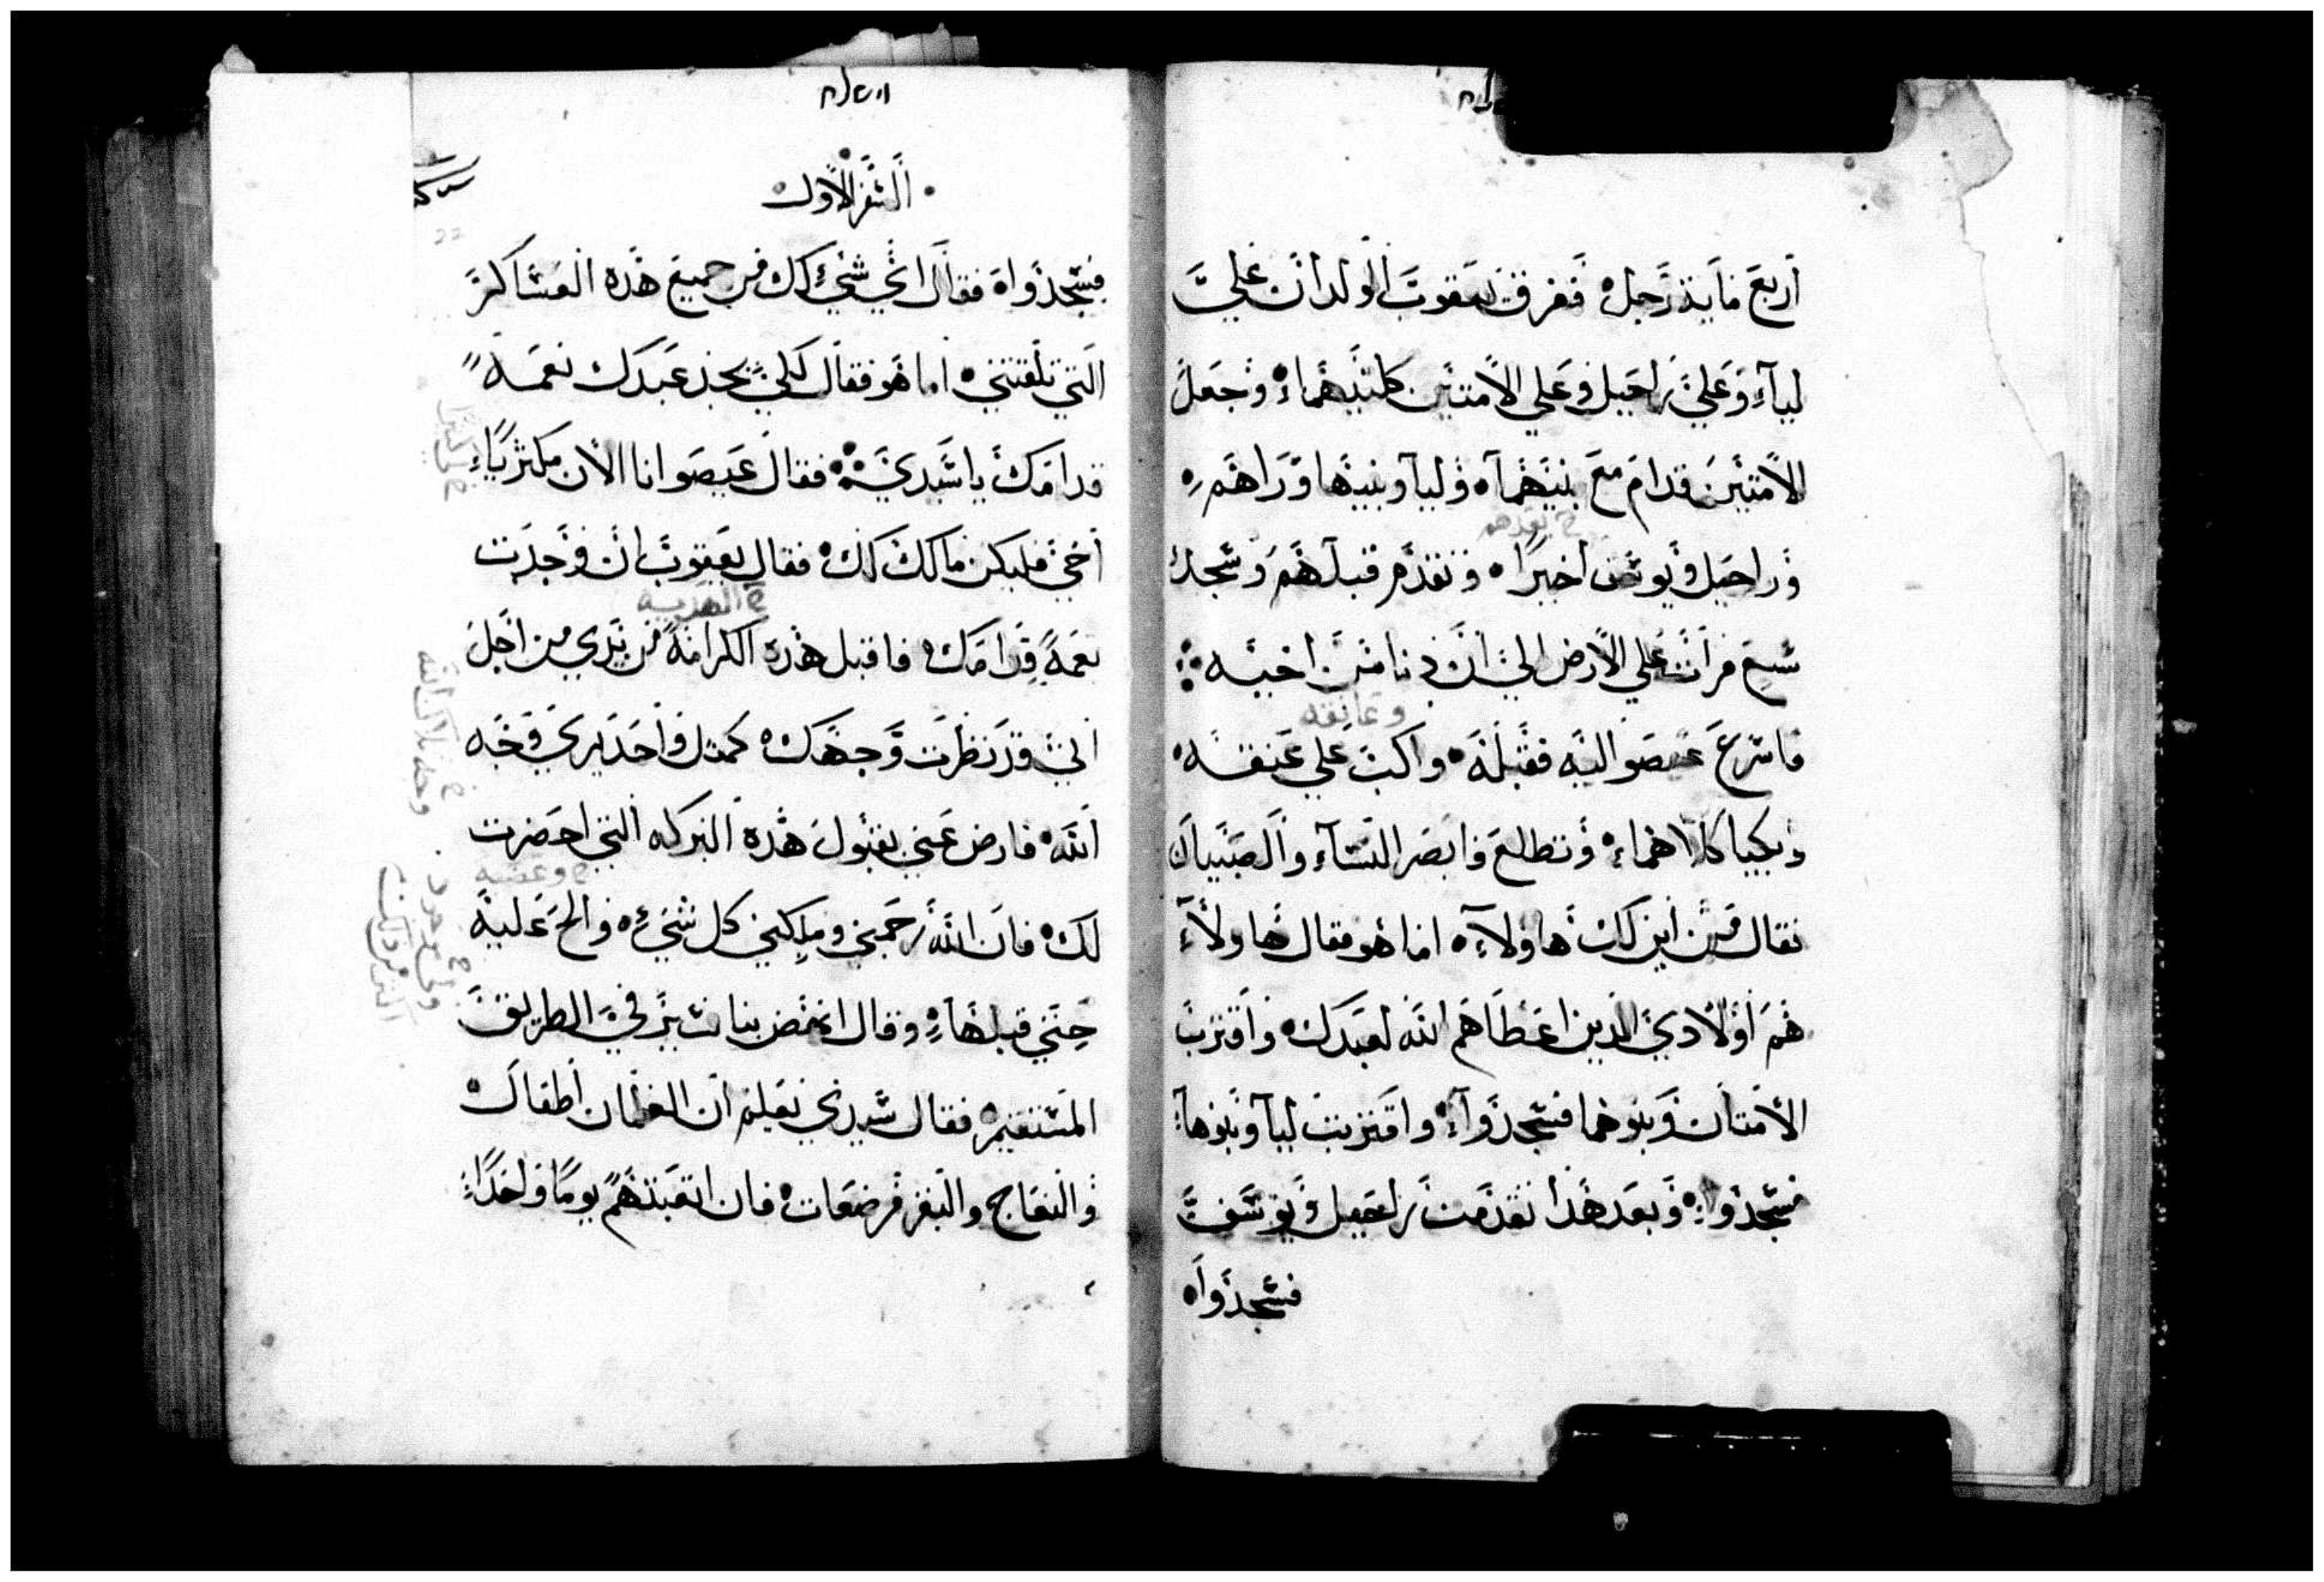 اربع ماية رجل ففرق يعقوب الولدان علي
ليآء وعلي راحيل وعلي الامتين كلتيهماء وجعل
الامتين قدام مع بنيهمآ وليآ وبنيها وراهم
ح بعدهم
وراحيل ويوسف اخيرا وتقدم قبلهم وسجد
سبع مرات علي الارض الي ان دنا من اخيه
وعانقه
فاسرع عيصو اليه فقبله واكب علي عنقه
وبكيا كلاهماء وتطلع وابصر النسآء والصبيان
فقال من اين لك هاولآء اما هو فقال هاولآء
هم اولادي الدين اعطاهم الله لعبدك واقتربت
الامتان وبنوهما فسجدوآء واقتربت ليآ وبنوهآء
فسجدواء وبعد هدا تقدمت راحيل ويوسف
فسجدوا
السفر الاول
22
فسجدوا فقال اي شي لك من جميع هده العساكر
التي تلقتني اما هو فقال لكي يجد عبدك نعمة
قدامك يا سيدي فقال عيصو انا الان مكثر ياء
اخي فليكن مالك لك فقال يعقوب ان وجدت
ح الهدية
نعمة قدامك فاقبل هده الكرامة من يدي من اجل
اني قد نظرت وجهك كمثل واحد يري وجه
ح وجه ملاك الله
الله فارض عني بقبول هده البركه التي احضرت
لك فان الله رحمني وملكني كل شيء والح عليه
حتي قبلهاء وقال انهض بنا نسير في الطريق
المستقيم فقال سيدي يعلم ان الغلمان اطفال
والنعاج والبقر مرضعات فان اتعبتهم يوما واحداء